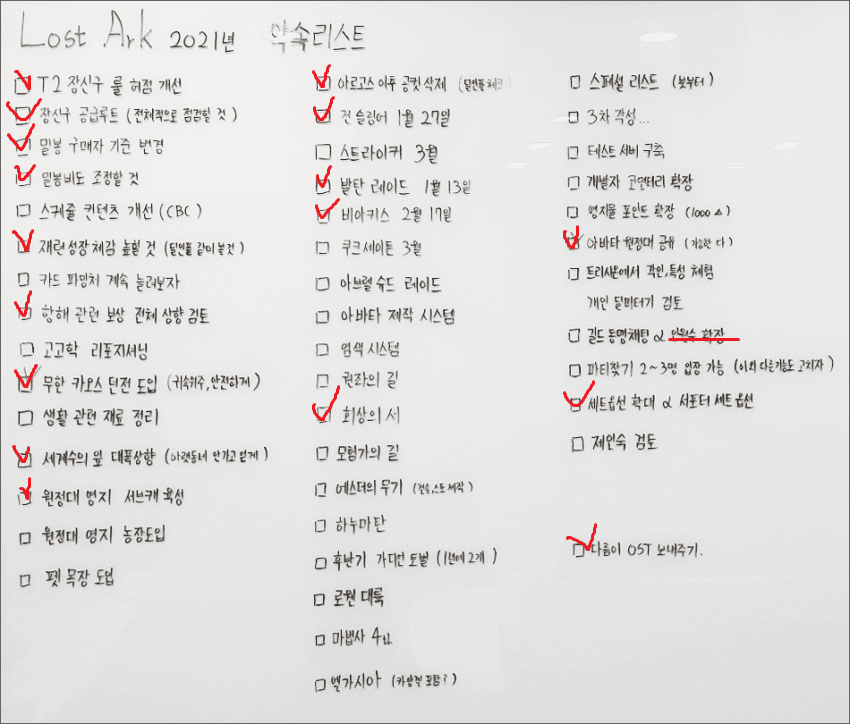 Lost Ark 2021년 약속리스트
T2 장신구 룰 허점 개선
장신구 공급루트 (전체적으로 점검할 것)
밀봉 구매자 기준 변경
밀봉비도 조정할 것
스케줄 컨텐츠 개선 (CBC)
재련 성장 체감 높힐 것 (딜민폴 같이 볼것)
카드 파밍처 계속 늘려보자
항해 관련 보상 전체 상향 검토
고고학 리포지셔닝
무한 카오스 던전 도입 (귀속위주, 안전하게)
생활 관련 재료 정리
세계수의 잎 대폭상향 (아랫동네 안가고 싶게)
원정대 영지 서브캐 육성
원정대 영지 농장도입
펫 목장 도입
아르고스 이후 공킷 삭제
건슬링어 1월 27일
스트라이커 3월
발탄 레이드 1월 13일
비아키스 2월 17일
쿠크세이튼 3월
아브렐슈드 레이드
아바타 제작 시스템
염색 시스템
권좌의 길
회상의 서
모험가의 길
에스더의 무기 (전승, 스토 제작)
하누마탄
후반기 가디언 토벌 (1년에 2개)
로웬 대륙
마법사 4
벨가시아 (카양겔 포함?)
스페셜 리스트 (붓부터)
3차 각성...
테스트 서버 구축
개발자 코멘터리 확장
영지물 포인트 확장 (1000
아바타 원정대 공유 (가능한 다)
트리시온에서 각인, 특성 체험
개인 딜미터기 검토
길드 동맹채팅 & 인원수 확장
파티찾기 2~3명 입장 가능 (이외 다른기능도 고치자)
세트옵션 확대 & 서포터 세트옵션
제인숙 검토
다름이 OST 보내주기.